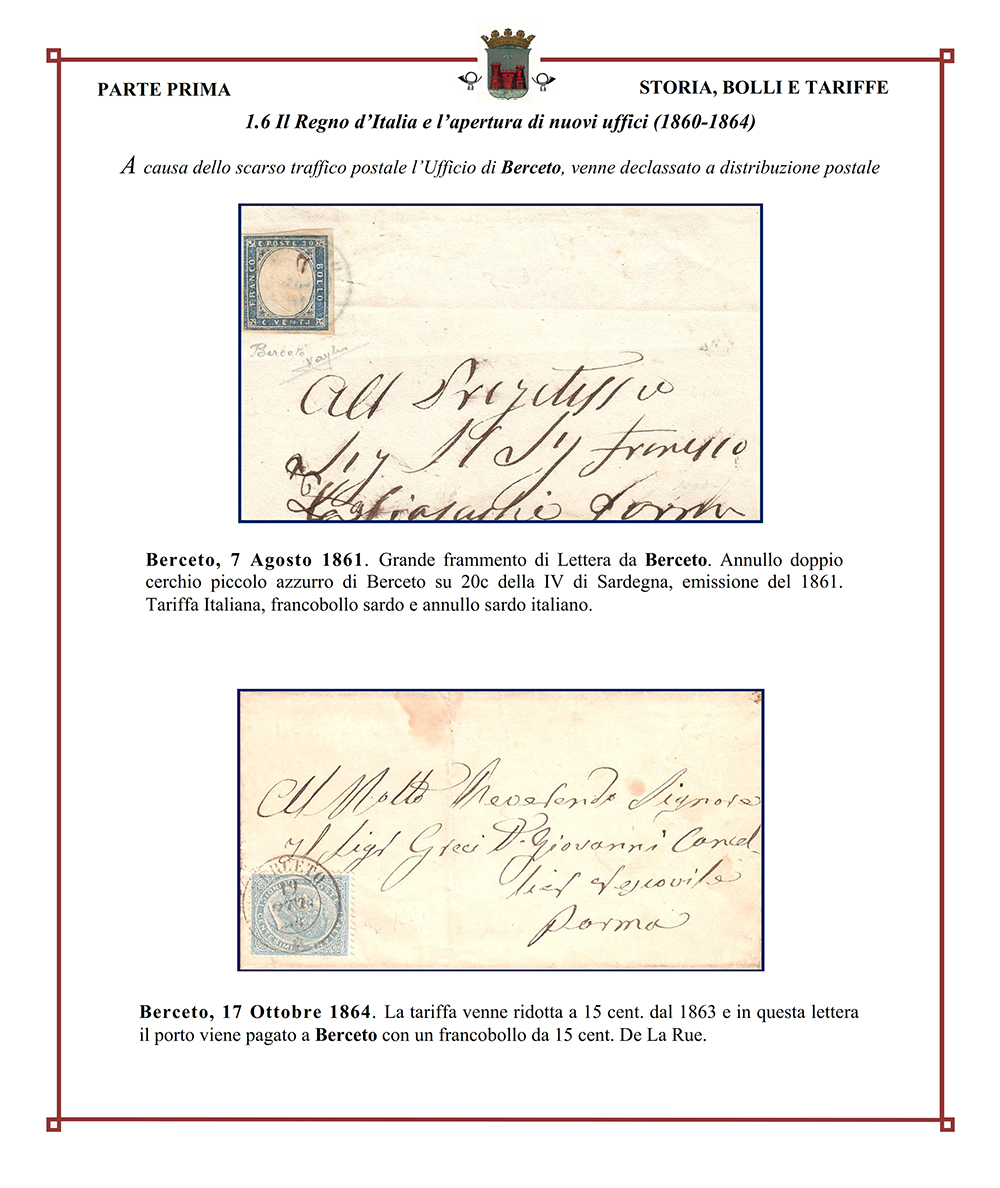 PARTE PRIMA
STORIA, BOLLI E TARIFFE
1.6 Il Regno d’Italia e l’apertura di nuovi uffici (1860-1864)
A causa dello scarso traffico postale l’Ufficio di Berceto, venne declassato a distribuzione postale
C. POSTE. 20
FRANCO
BOLLO
C. VENTI
Berceto
All Pregitissio
Sig Il Sig Francesco
Parma
Berceto, 7 Agosto 1861. Grande frammento di Lettera da Berceto. Annullo doppio
cerchio piccolo azzurro di Berceto su 20c della IV di Sardegna, emissione del 1861.
Tariffa Italiana, francobollo sardo e annullo sardo italiano.
Al Molto Reverendo Signore
Il Sigr Greci D. Giovanni Cancel-
lier Vescovile
Parma
BERCETO
Berceto, 17 Ottobre 1864. La tariffa venne ridotta a 15 cent. dal 1863 e in questa lettera
il porto viene pagato a Berceto con un francobollo da 15 cent. De La Rue.